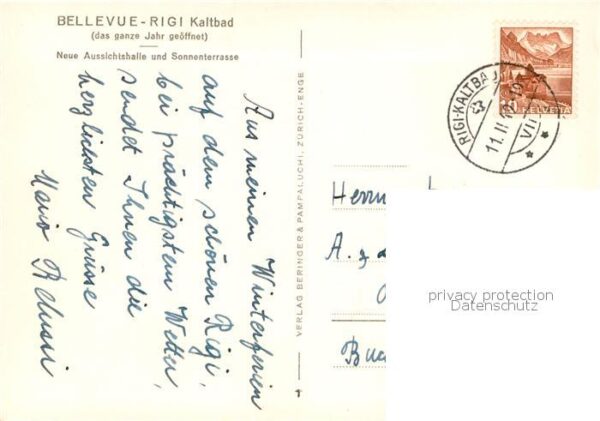 BELLEVUE-RIGI Kaltbad
(das ganze Jahr geöffnet)
Neue Aussichtshalle und Sonnenterrasse
Aus meinen Winterferien
auf dem schönen Rigi,
bei prächtigstem Wetter,
sendet Ihnen die
herzlichsten Grüsse
VERLAG BERINGER & PAMPALUCHI, ZÜRICH-ENGE
RIGI-KALTBAD
11.II
VII
HELVETIA
Herrn
A.
privacy protection
Datenschutz